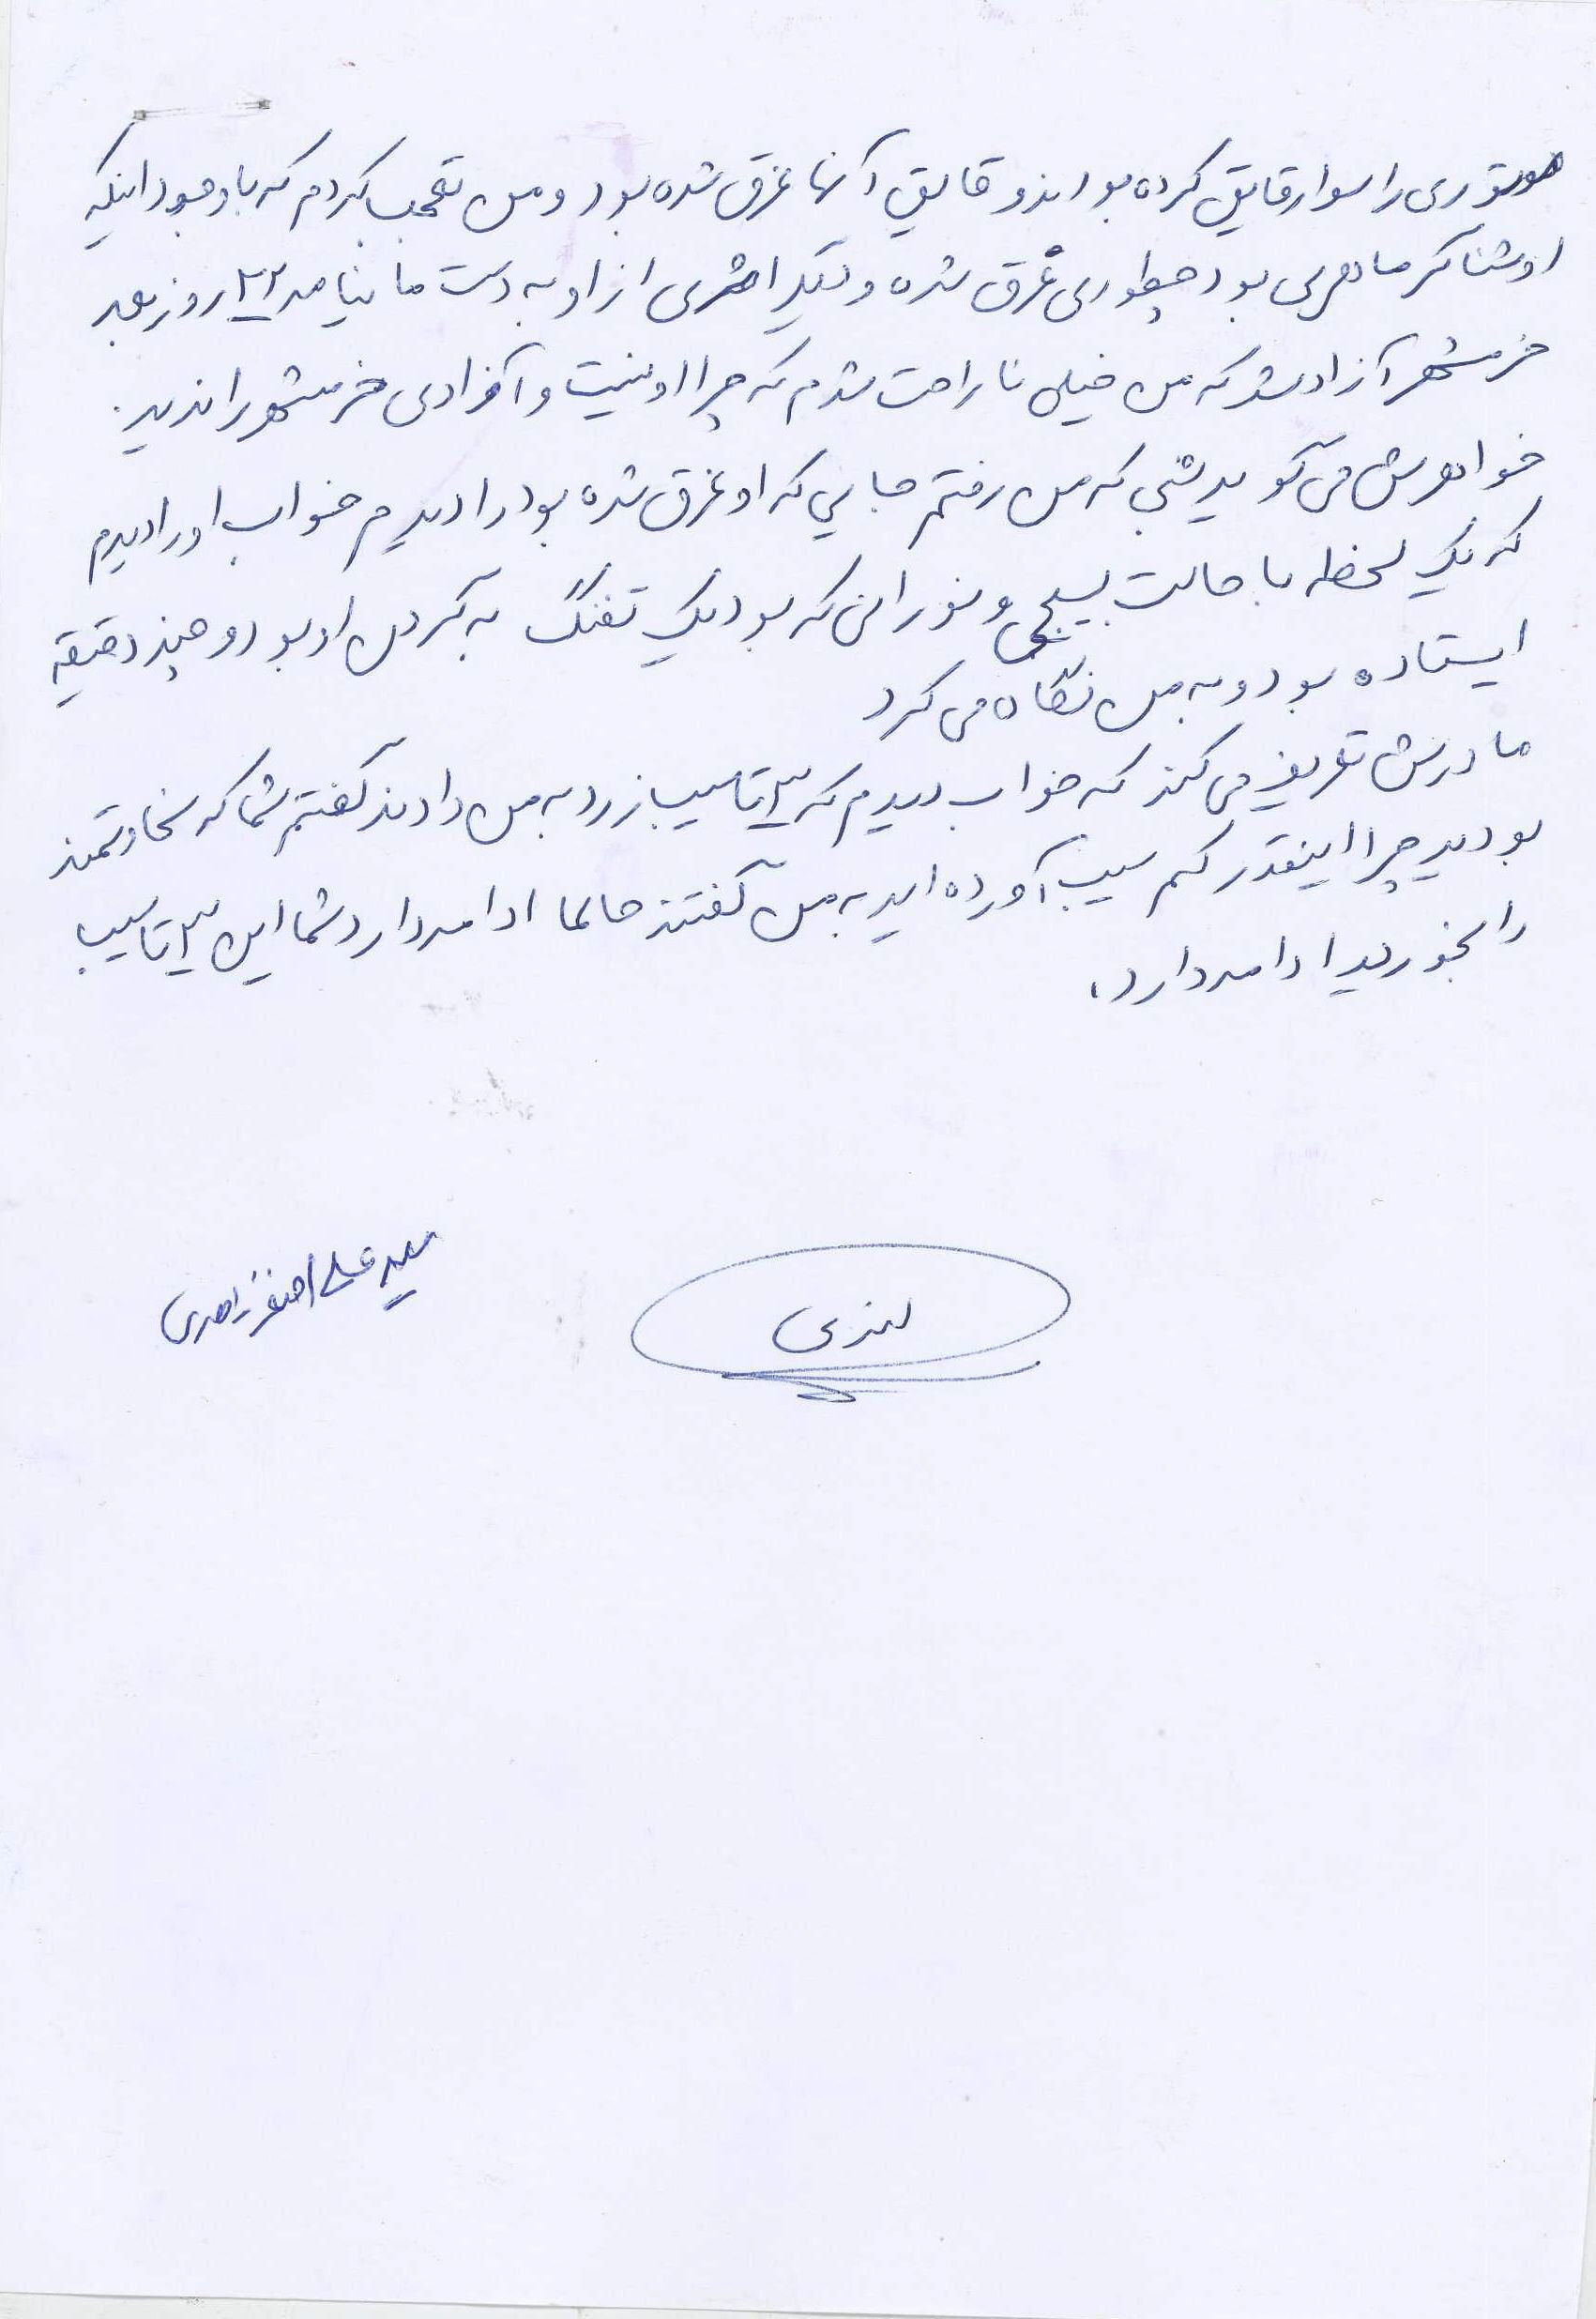 موتوری را سوار قایق کرده بودند و قایق آنها غرق شده بود و من تعجب کردم که با وجود اینکه
او شناگر ماهری بود چطوری غرق شده و دیگر اثری از او به دست ما نیامد ۲۲ روز بعد
خرمشهر آزاد شد که من خیلی ناراحت شدم که چرا او نیست و آزادی خرمشهر را ندید.
خواهرش می گوید شبی که من رفتم جایی که او غرق شده بود را دیدم خواب او را دیدم
که یک لحظه با حالت بسیجی و نورانی که بود یک تفنگ به گردن او بود و چند دقیقه
ایستاده بود و به من نگاه می کرد
مادرش تعریف می کند که خواب دیدم که ۳ تا سیب زرد به من دادند گفتم شما که سخاوتمند
بودید چرا اینقدر کم سیب آورده اید به من گفتند حالا ادامه دارد شما این ۳ تا سیب
را بخورید ادامه دارد.
سید علی اصغر